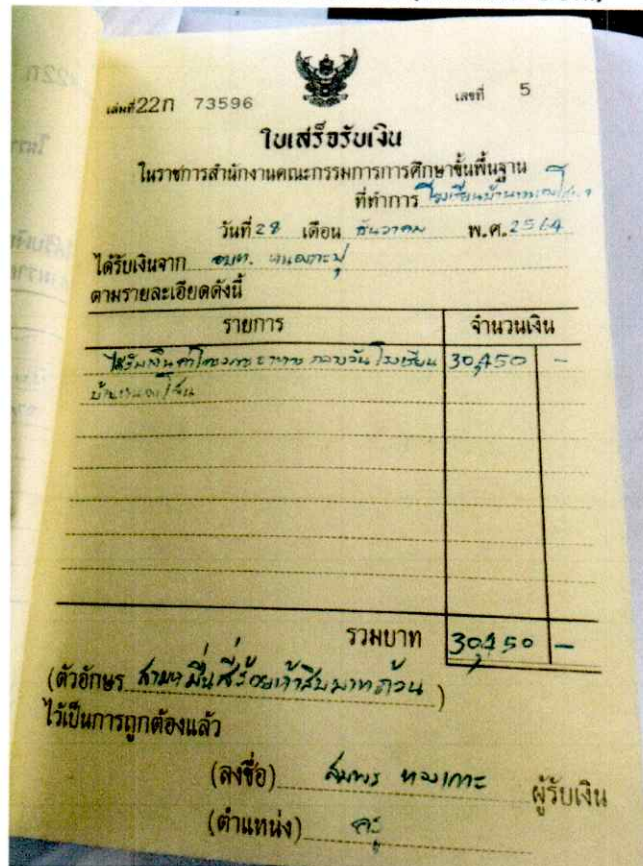 เล่มที่ 22ก 73596 เลขที่ 5
ใบเสร็จรับเงิน
ในราชการสำนักงานคณะกรรมการการศึกษาขั้นพื้นฐาน
ที่ทำการ โรงเรียนบ้าน
วันที่ 28 เดือน ธันวาคม พ.ศ. 2564
ได้รับเงินจาก อบต.
ตามรายละเอียดดังนี้
รายการ จำนวนเงิน
ได้รับเงินค่าโครงการอาหารกลางวัน โรงเรียน 30,450 -
รวมบาท 30,450 -
(ตัวอักษร สามหมื่นสี่ร้อยห้าสิบบาทถ้วน )
ไว้เป็นการถูกต้องแล้ว
(ลงชื่อ) ผู้รับเงิน
(ตำแหน่ง) ครู